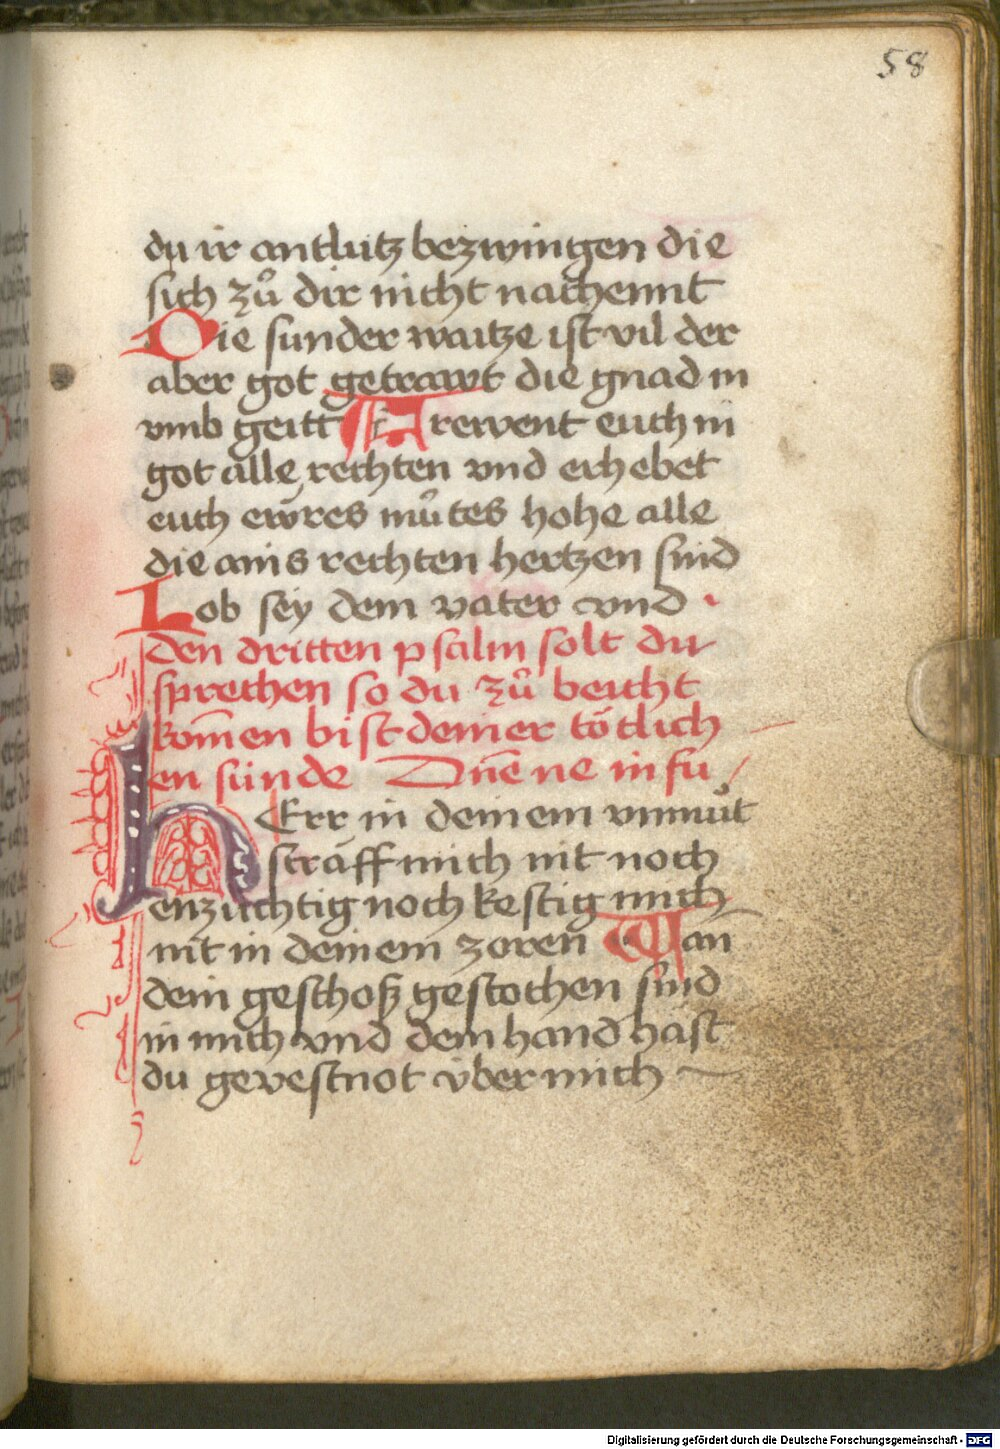 58
du ir antlutz bezwingen die
sich zů dir nicht nachennt
Die sunder waitze ist vil der
aber got getrawt die gnad in
vmb geitt Frewent euch in
got alle rechten vnd erhebet
euch ewres můtes hohe alle
die ains rechten hertzen sind
Lob sey dem vater vnd
den dritten psalm solt du
sprechen so du zů beicht
kom̄en bist deiner tötlich
en sünde Dn̄e ne in fu
hErr in deinem vnmůt
straff mich nit noch
enzüchtig noch kestig mich
nit in deinem zoren Wan
dein geschoß gestochen sind
in mich vnd dein hand hast
du gevestnot über mich
Digitalisierung gefördert durch die Deutsche Forschungsgemeinschaft - DFG